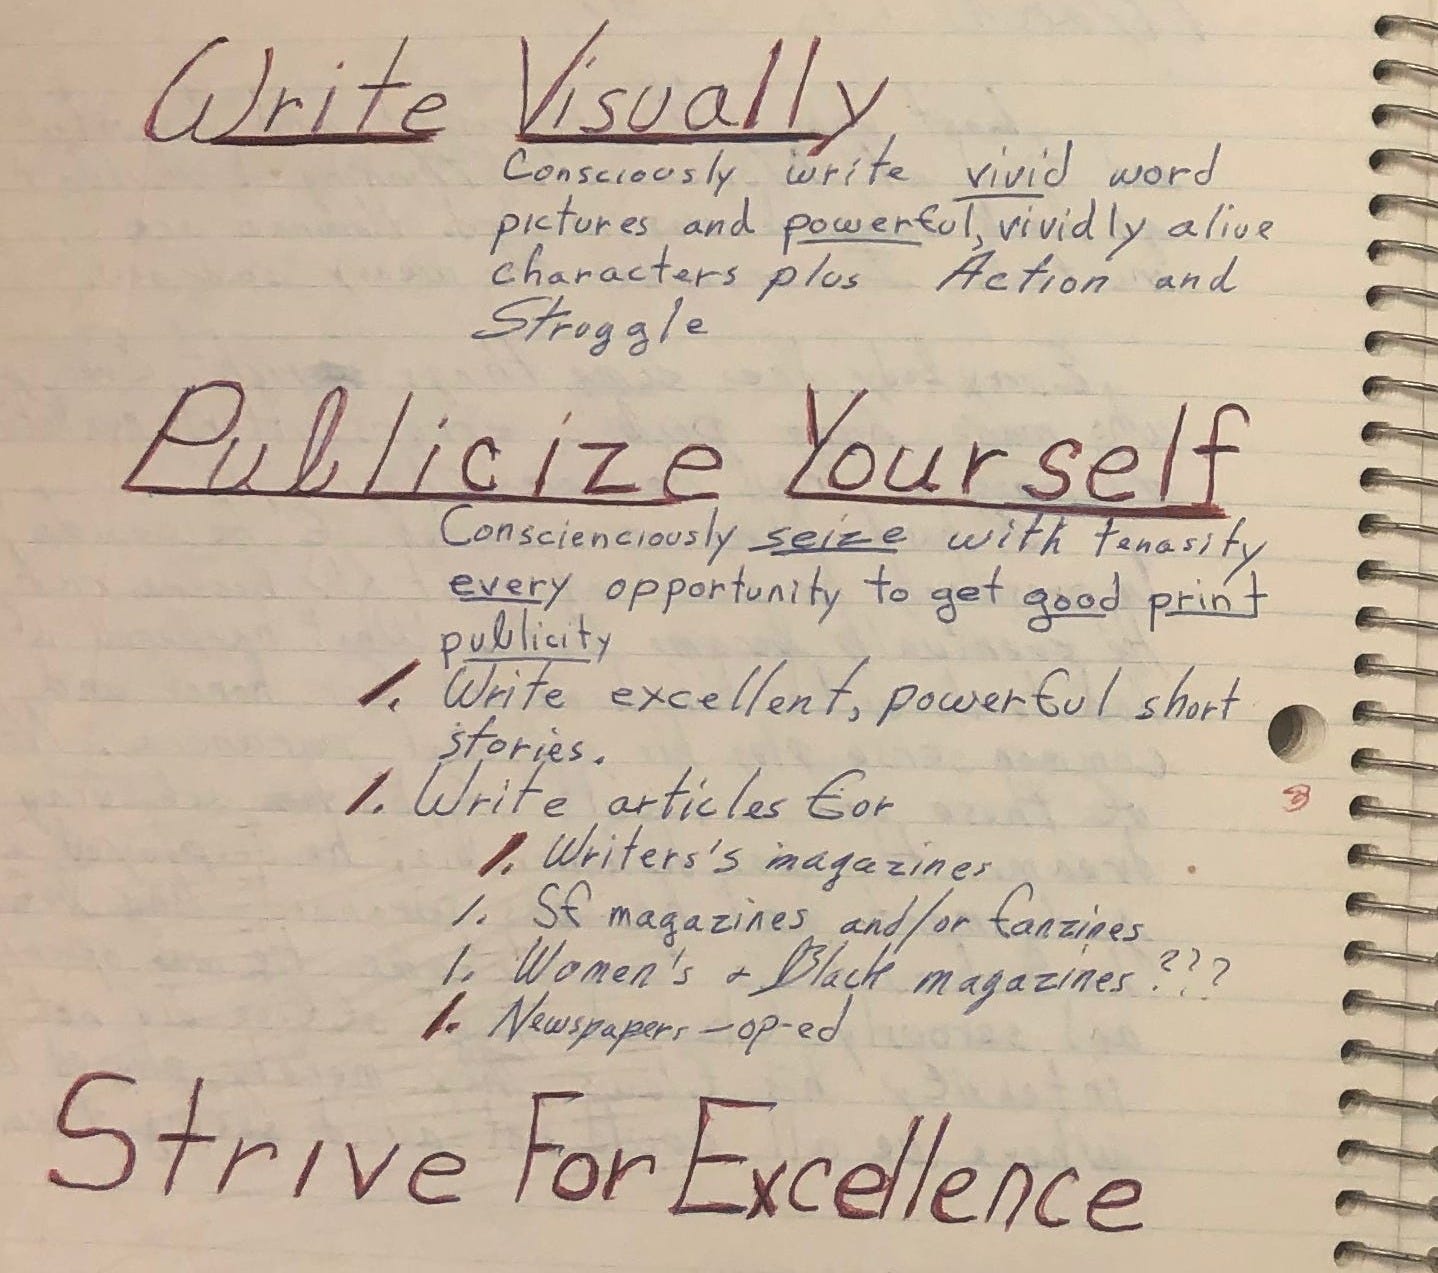 Write Visually
Consciously write vivid word
pictures and powerful, vividly alive
characters plus Action and
Struggle
Publicize Yourself
Conscienciously seize with tenasity
every opportunity to get good print
publicity
1. Write excellent, powerful short
stories.
1. Write articles for
1. Writers's magazines
1. Sf magazines and/or fanzines
1. Women's & Black magazines???
1. Newspapers – op-ed
Strive For Excellence